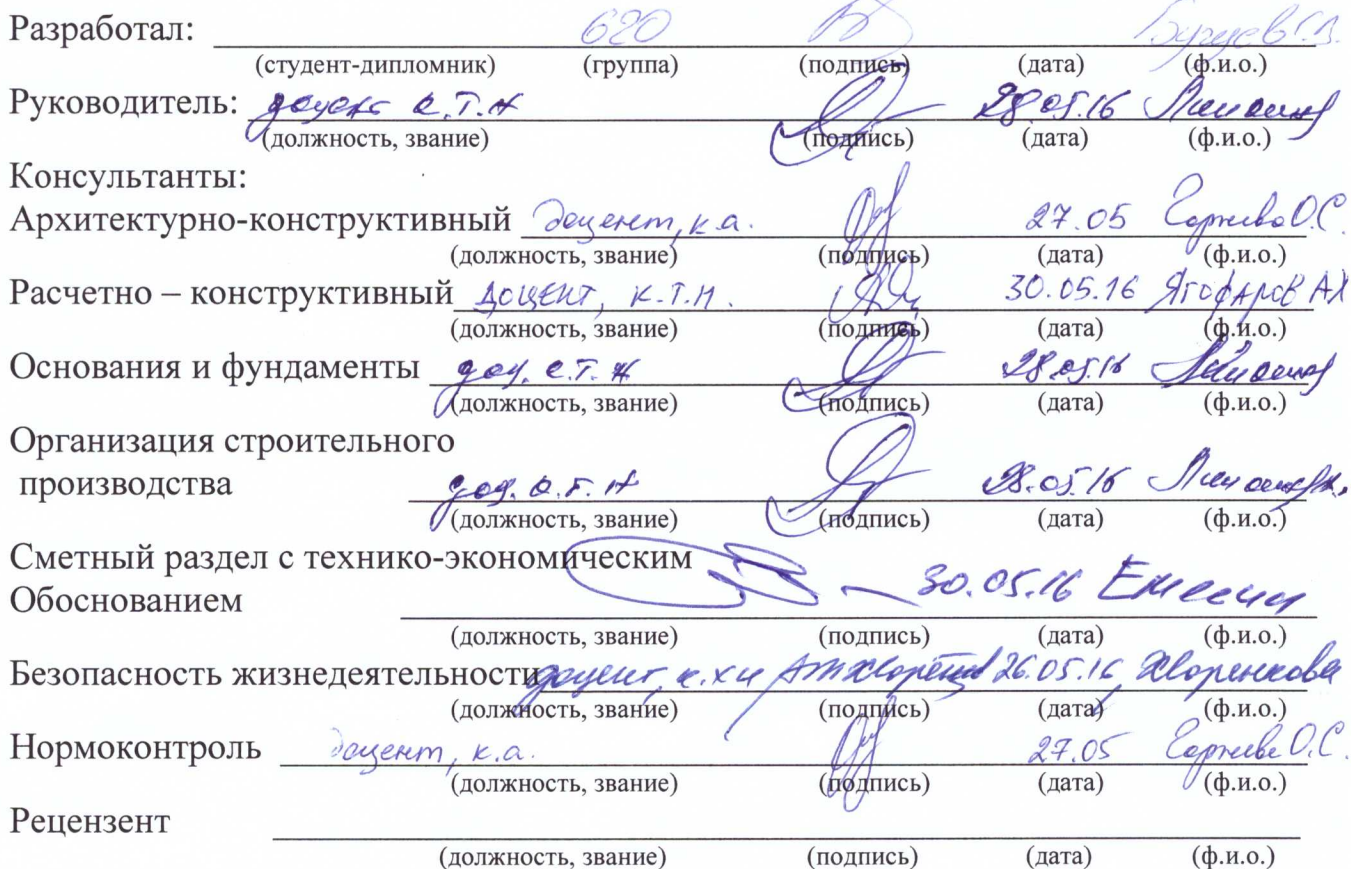 Разработал: 620
(студент-дипломник) (группа) (подпись) (дата) (ф.и.о.)
Руководитель: доцент к.т.н 28.05.16
(должность, звание) (подпись) (дата) (ф.и.о.)
Консультанты:
Архитектурно-конструктивный доцент, к.а. 27.05 О.С.
(должность, звание) (подпись) (дата) (ф.и.о.)
Расчетно – конструктивный доцент, к.т.н. 30.05.16 Ягофаров АХ
(должность, звание) (подпись) (дата) (ф.и.о.)
Основания и фундаменты доц. к.т.н 28.05.16
(должность, звание) (подпись) (дата) (ф.и.о.)
Организация строительного
производства доц. к.т.н 28.05.16
(должность, звание) (подпись) (дата) (ф.и.о.)
Сметный раздел с технико-экономическим
30.05.16
Обоснованием
(должность, звание) (подпись) (дата) (ф.и.о.)
Безопасность жизнедеятельности доцент, к.хн 26.05.16 Хворенкова
(должность, звание) (подпись) (дата) (ф.и.о.)
Нормоконтроль доцент, к.а. 27.05 О.С.
(должность, звание) (подпись) (дата) (ф.и.о.)
Рецензент
(должность, звание) (подпись) (дата) (ф.и.о.)